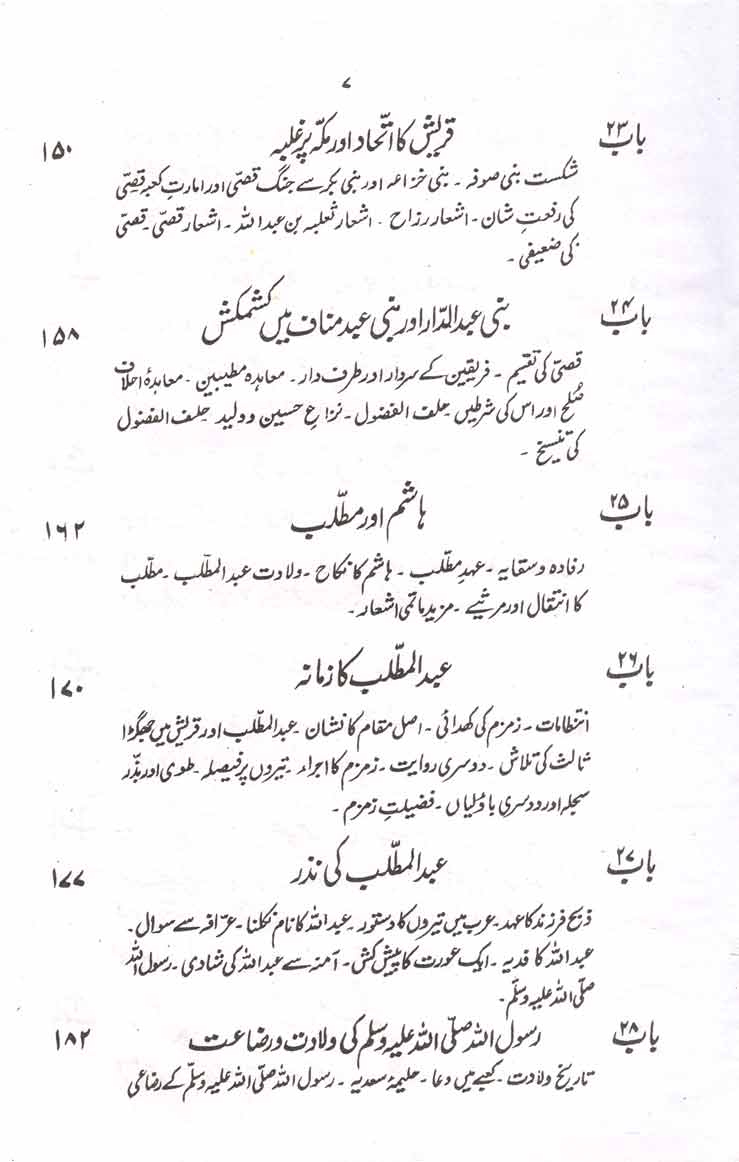 ۷
باب ۲۳ قریش کا اتّحاد اور مکّہ پر غلبہ ۱۵۰
شکست بنی صوفہ ۔ بنی خزاعہ اور بنی بکر سے جنگ قصّی اور امارتِ کعبہ قصّی
کی رفعتِ شان ۔ اشعار رزاح ۔ اشعار ثعلبہ بن عبد اللہ ۔ اشعار قصّی ۔ قصّی
کی ضعیفی ۔
باب ۲۴ بنی عبد الدّار اور بنی عبد مناف میں کشمکش ۱۵۸
قصّی کی تقسیم ۔ فریقین کے سردار اور طرف دار ۔ معاہدہ مطیبین ۔ معاہدۂ احلاف
صُلح اور اس کی شرطیں حلف الفضول ۔ نزاعِ حسین و ولید حلف الفضول
کی تنسیخ ۔
باب ۲۵ ہاشم اور مطّلب ۱۶۲
رفادہ و سقایہ ۔ عہدِ مطّلب ۔ ہاشم کا نکاح ۔ ولادت عبد المطّلب ۔ مطّلب
کا انتقال اور مرثیے ۔ مزید ماتمی اشعار ۔
باب ۲۶ عبد المطّلب کا زمانہ ۱۷۰
انتظامات ۔ زمزم کی کھدائی ۔ اصل مقام کا نشان ۔ عبد المطّلب اور قریش میں جھگڑا
ثالث کی تلاش ۔ دوسری روایت ۔ زمزم کا اجراء ۔ تیروں پر فیصلہ ۔ طوی اور بذّر
سجلہ اور دوسری باؤلیاں ۔ فضیلتِ زمزم ۔
باب ۲۷ عبد المطّلب کی نذر ۱۷۷
ذبح فرزند کا عہد ۔ عرب میں تیروں کا دستور ۔ عبد اللہ کا نام نکلنا ۔ عرّافہ سے سوال ۔
عبد اللہ کا فدیہ ۔ ایک عورت کا پیش کش ۔ آمنہ سے عبد اللہ کی شادی ۔ رسول اللہ
صلّی اللہ علیہ وسلّم ۔
باب ۲۸ رسول اللہ صلّی اللہ علیہ وسلّم کی ولادت و رضاعت ۱۸۲
تاریخ ولادت ۔ کعبے میں دعا ۔ حلیمۂ سعدیہ ۔ رسول اللہ صلّی اللہ علیہ وسلّم کے رضاعی